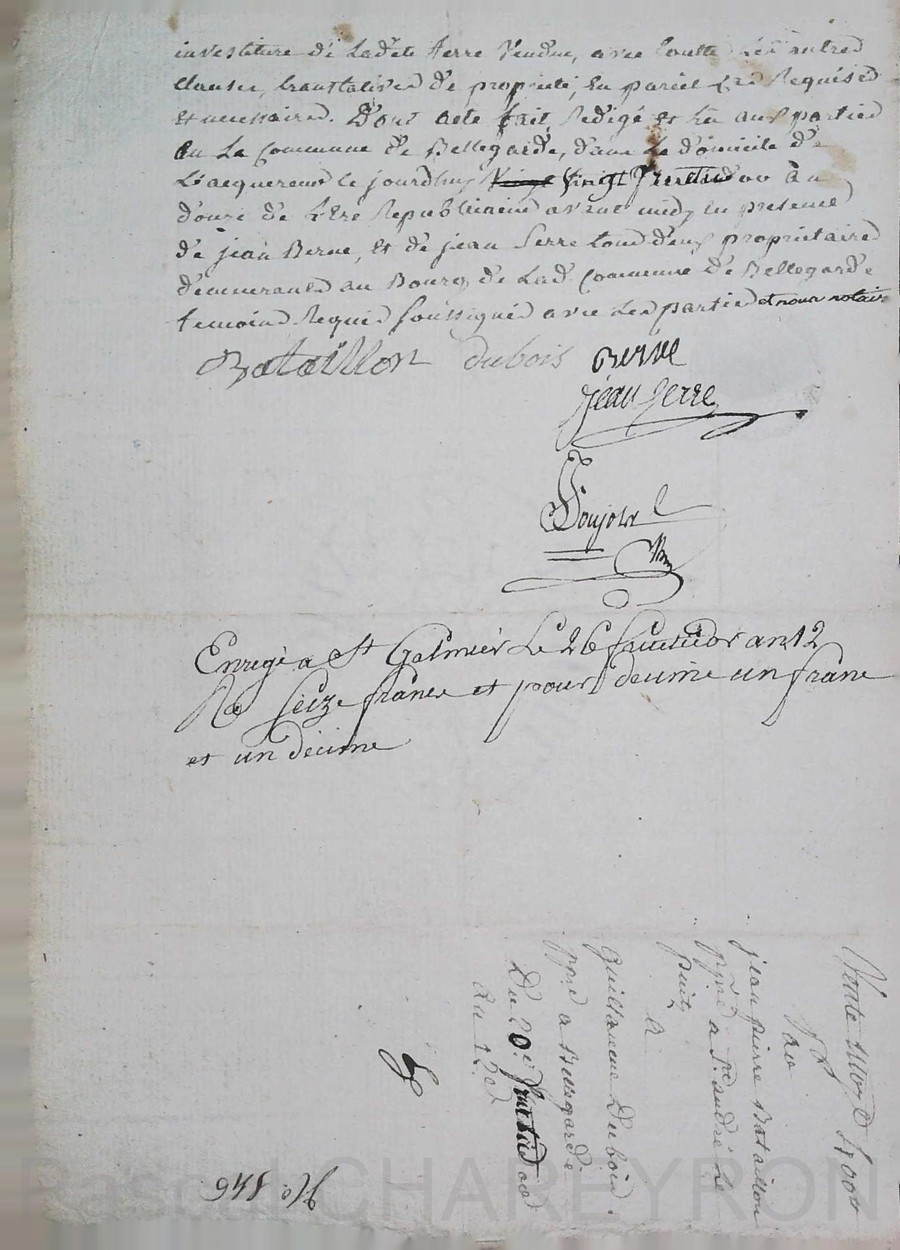 investiture de Ladte terre Vendue, avec toutte Les autres
clauses, translatives de propriété, En pareil Cas Requises
Et necessaires. Dont acte fait, Redigé et Lu aux parties
En La Commune de Bellegarde, dans Le domicile de
L'acquereur le jourdhuy vingt fructidor an
douze de L'Ere Republicaine avant midy, En presence
de jean Berne, Et de jean Serre tous deux propriétaires
demeurants au Bourg de Lad. Commune de Bellegarde
temoins Requis soussignés avec Les parties et nous notaire
Bataillon dubois Berne
jean Serre
Poujola
Enrgé a St Galmier Le 26 fructidor an 12
Ru seize francs et pour decime un franc
et un décime
Vente
par
jean pierre Bataillon
ppre a St andré Le
puits
A
Guillaume Dubois
ppre a Bellegarde
Du 20. fructidor
an 12
No. 146
Pascal CHAREYRON